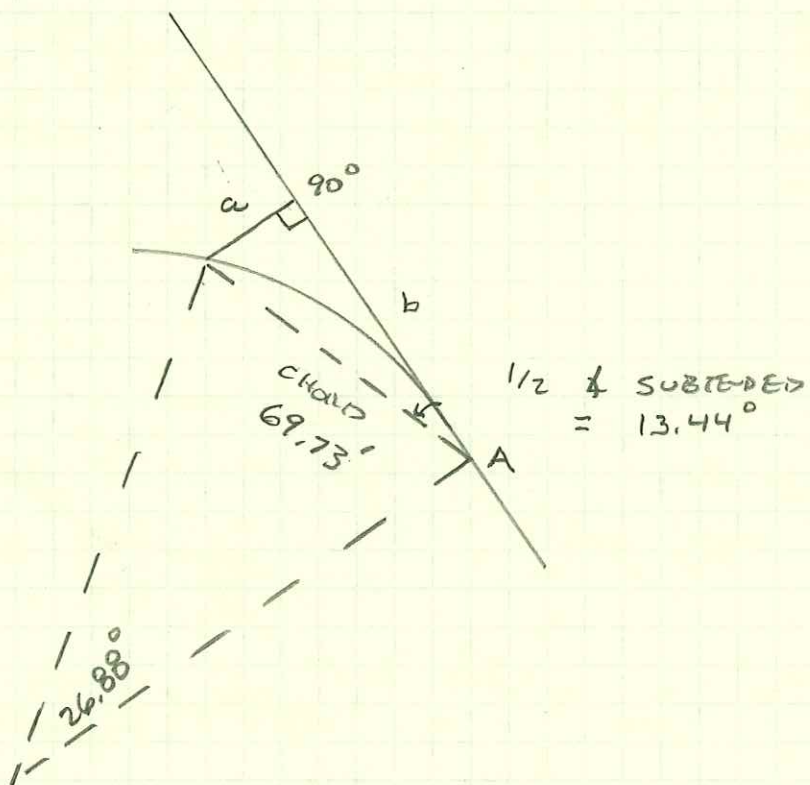 90°
a
b
CHORD
69.73'
1/2 ∡ SUBTENDED
= 13.44°
A
26.88°